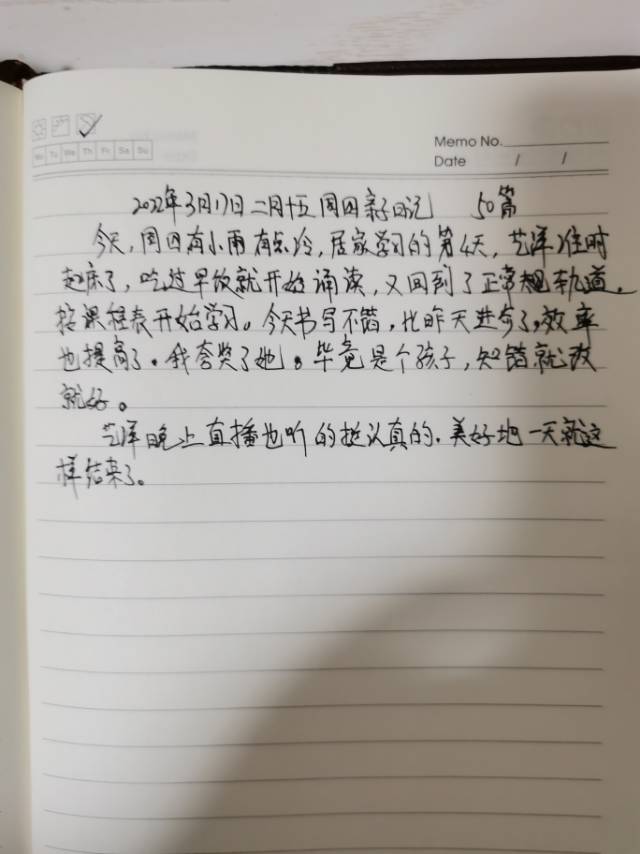 Memo No.
Mo Tu We Th Fr Sa Su
Date / /
2022年3月17日二月十五周四亲子日记 50篇
今天,周四有小雨有点冷,居家学习的第4天,艺洋准时
起床了,吃过早饭就开始诵读,又回到了正常规轨道.
按课程表开始学习。今天书写不错,比昨天进步了,效率
也提高了.我夸奖了她。毕竟是个孩子,知错就改
就好。
艺洋晚上直播也听的挺认真的.美好地一天就这
样结束了。